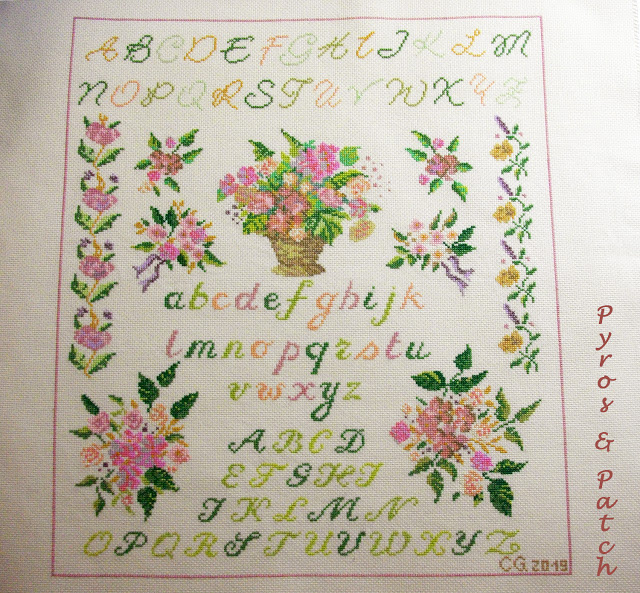 A B C D E F G H I J K L M
N O P Q R S T U V W X Y Z
a b c d e f g h i j k
l m n o p q r s t u
v w x y z
A B C D
E F G H I
J K L M N
O P Q R S T U V W X Y Z
CG. 2019
Pyros & Patch